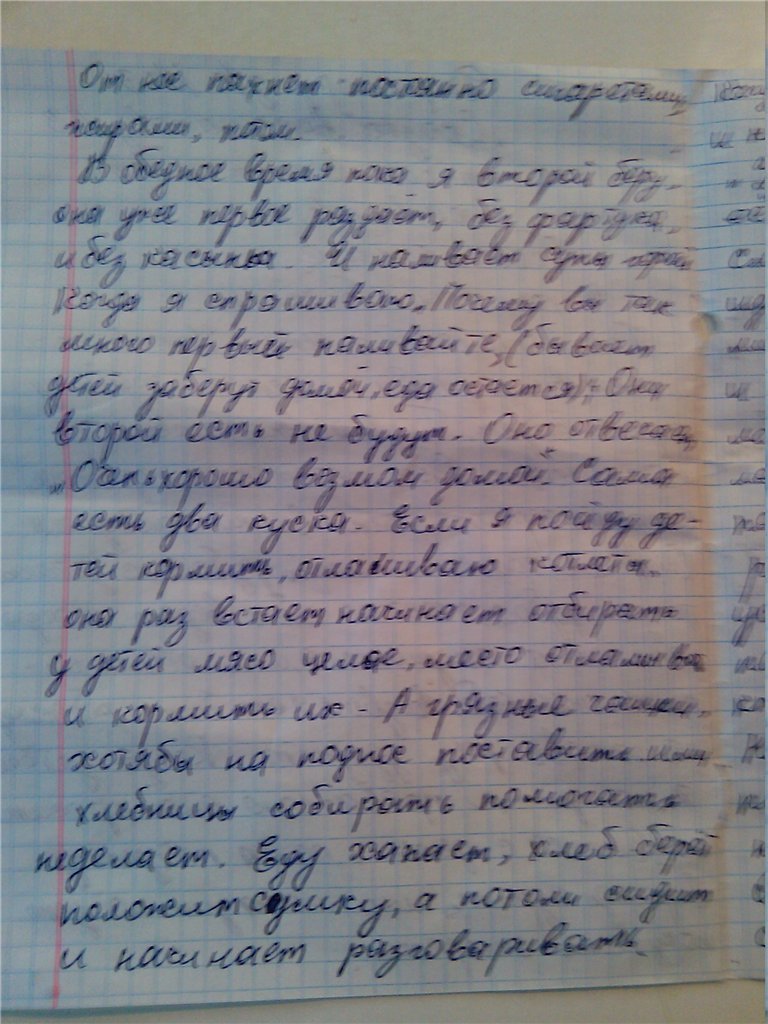 От неё пахнет постоянно сигаретами,
жирами, потом.
В обедное время пока я второй беру.
она уже первое раздает, без фартука,
и без касынка. И наливает супы
Когда я спрашиваю „Почему вы так
много первый наливайте, (бывает
детей заберут домой, еда остается), Они
второй есть не будут. Она отвечает,
„Очень хорошо возмом домой. Сама
есть два куска. Если я пойду де-
тей кормить, отламываю котлеты.
она раз встает начинает отбирать
у детей мясо целое, место отламывать
и кормить их - А грязные чашки,
хотябы на поднос поставить или
хлебницы собирать помогать
неделает. Еду хапает, хлеб берет
положит сумку, а потом сидит
и начинает разговаривать.